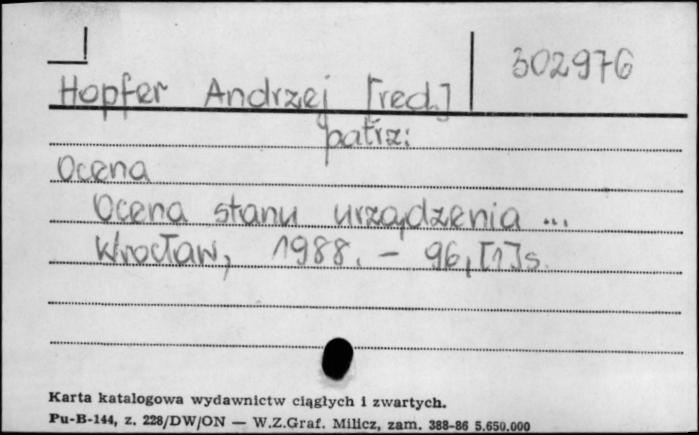 302976
Hopfer Andrzej [red.]
patrz:
Ocena
Ocena stanu urządzenia ...
Wrocław, 1988. - 96, [1] s.
Karta katalogowa wydawnictw ciągłych i zwartych.
Pu-B-144, z. 228/DW/ON — W.Z.Graf. Milicz, zam. 388-86 5.650.000